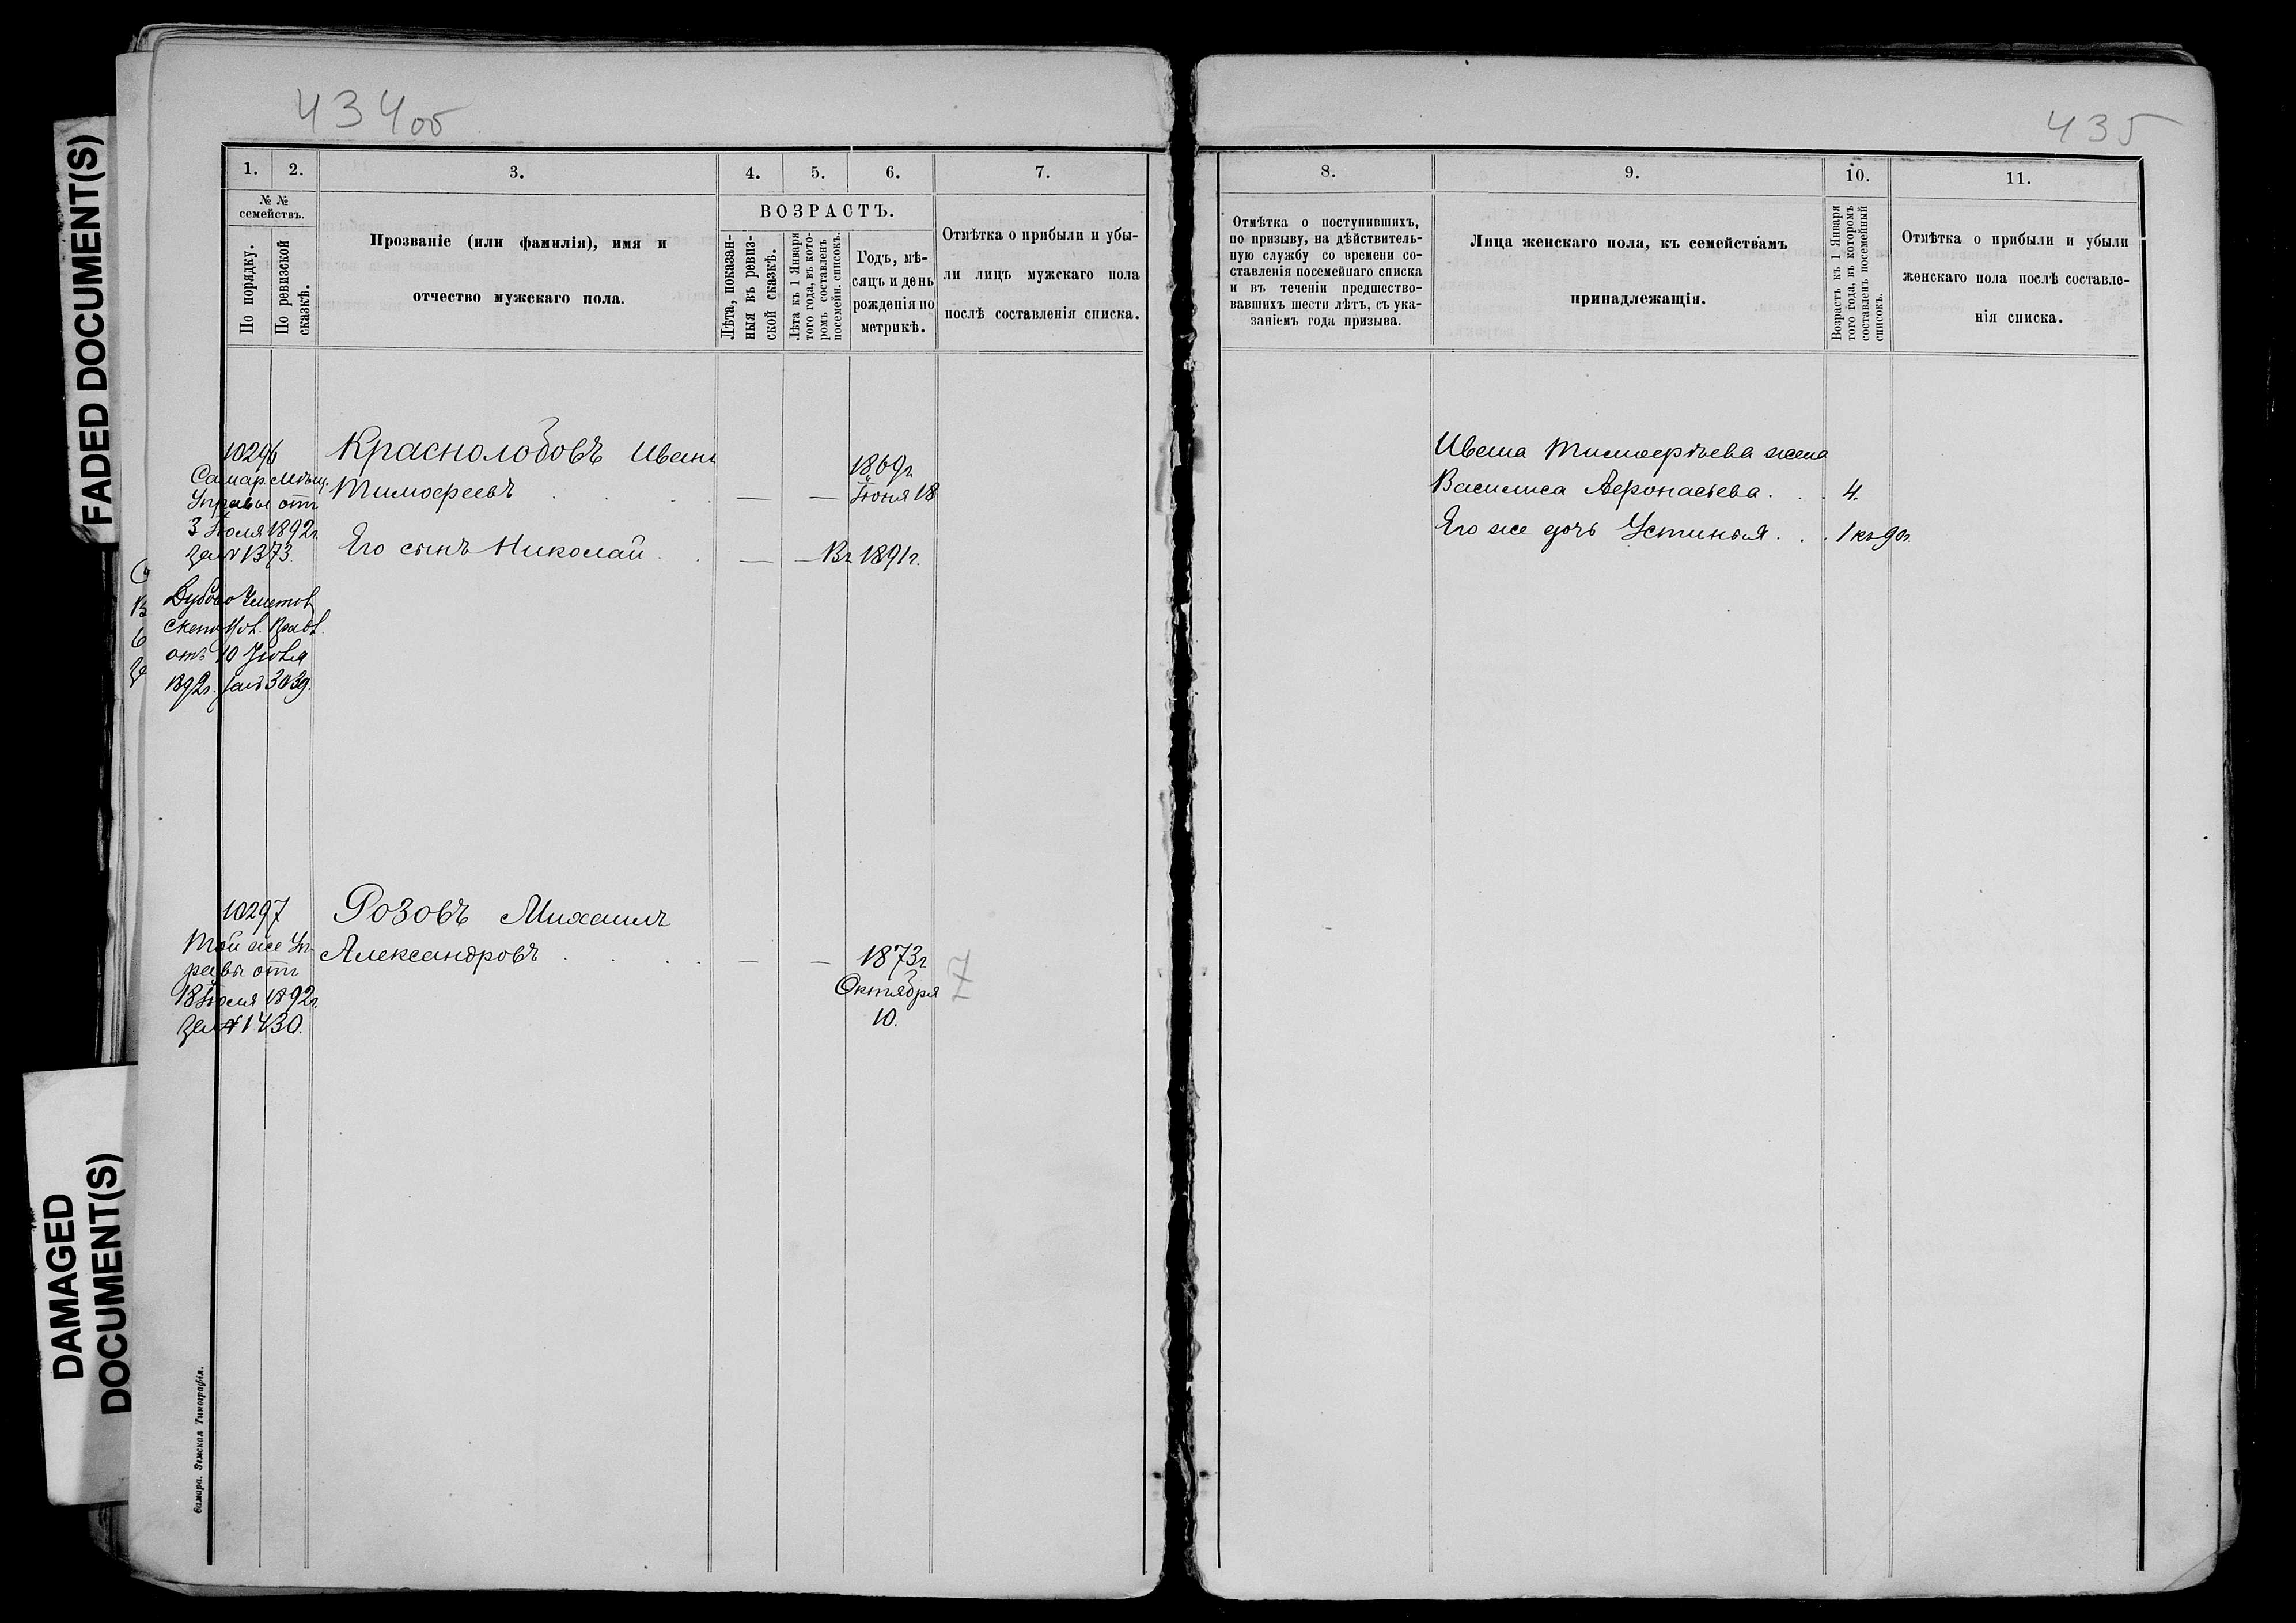 434об
1. 2. 3. 4. 5. 6. 7.
№ №
семействъ.
По порядку.
По ревизской
сказкѣ.
Прозваніе (или фамилія), имя и
отчество мужскаго пола.
ВОЗРАСТЪ.
Лѣта, показан-
ныя въ ревиз-
ской сказкѣ.
Лѣта къ 1 Января
того года, въ кото-
ромъ составленъ
посемейн. списокъ.
Годъ, мѣ-
сяцъ и день
рожденія по
метрикѣ.
Отмѣтка о прибыли и убы-
ли лицъ мужскаго пола
послѣ составленія списка.
10296
Самар. Мѣщ.
Управы от
3 Іюля 1892г.
за № 1373.
Дубово Уметов
от 10 Іюля
1892г. за № 3039.
Краснолобовъ Иванъ
Тимофеевъ . . . — —
1869г.
Іюня 18
Его сынъ Николай . . — — В 1891г.
10297
Той же Уп-
равы от
18 Іюля 1892г.
за № 1430.
Розовъ Михаилъ
Александровъ . . . . — — 1873г
Октября
10.
7
Самара. Земская Типографія.
435
8. 9. 10. 11.
Отмѣтка о поступившихъ,
по призыву, на дѣйствитель-
ную службу со времени со-
ставленія посемейнаго списка
и въ теченіи предшество-
вавшихъ шести лѣтъ, съ ука-
заніемъ года призыва.
Лица женскаго пола, къ семействамъ
принадлежащія.
Возрастъ къ 1 Января
того года, въ которомъ
составленъ посемейный
списокъ.
Отмѣтка о прибыли и убыли
женскаго пола послѣ составле-
нія списка.
Ивана Тимофѣева жена
Василиса Афонасьева . . . 4.
Его же дочь Устинья . . . 1 къ 90г.
FADED DOCUMENT(S)
DAMAGED
DOCUMENT(S)